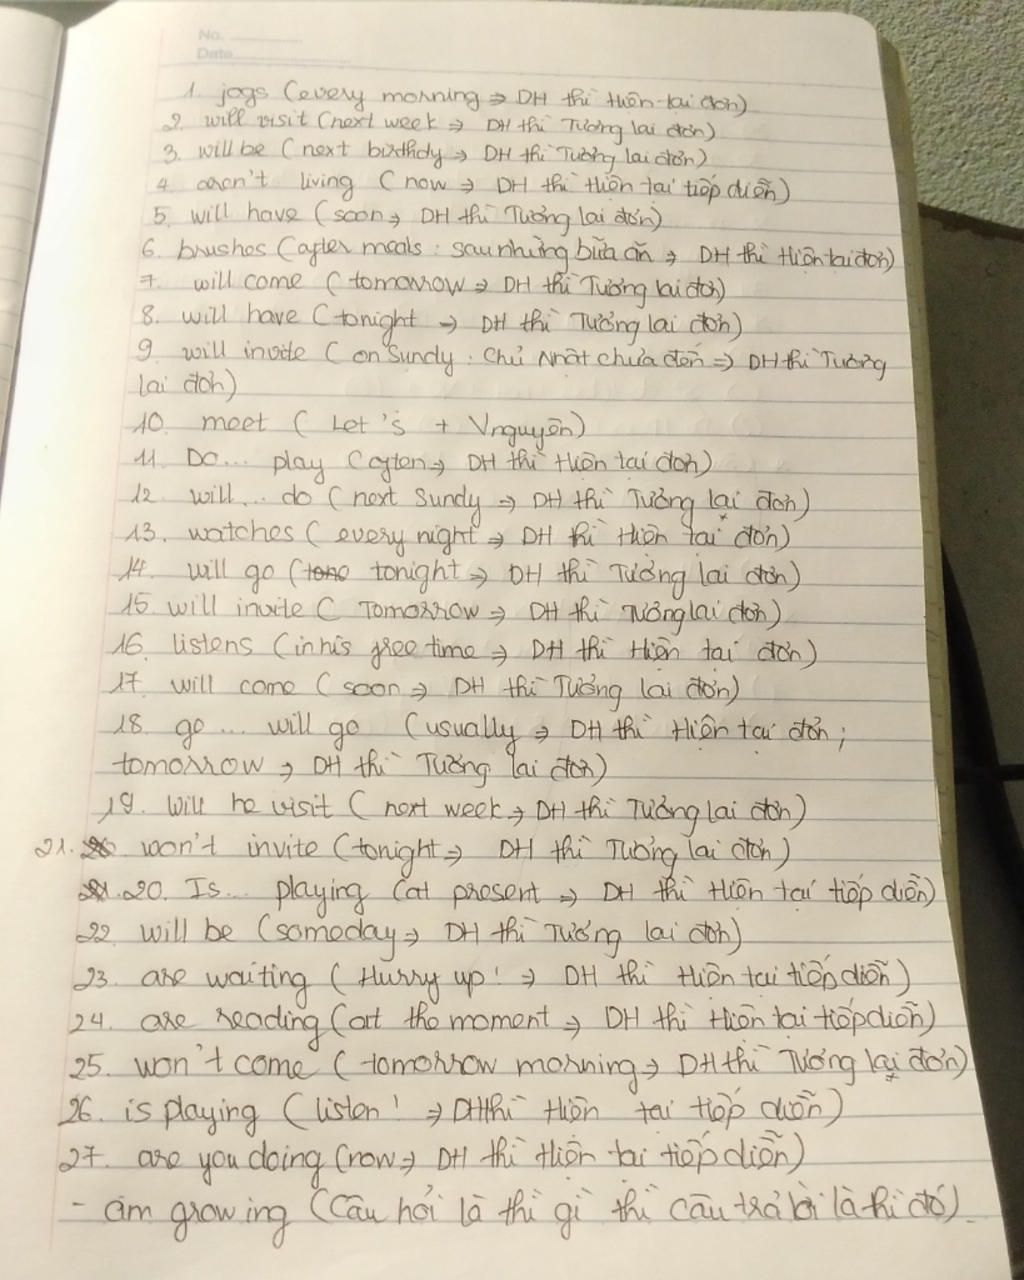 No.
Date
1. jogs (every morning ⇒ DH thì Hiện tại đơn)
2. will visit (next week ⇒ DH thì Tương lai đơn)
3. will be (next birthdy ⇒ DH thì Tương lai đơn)
4. aren't living (now ⇒ DH thì Hiện tại tiếp diễn)
5. will have (soon ⇒ DH thì Tương lai đơn)
6. brushes (after meals : sau những bữa ăn ⇒ DH thì Hiện tại đơn)
7. will come (tomorrow ⇒ DH thì Tương lai đơn)
8. will have (tonight → DH thì Tương lai đơn)
9. will invite (on Sundy : Chủ Nhật chưa đến ⇒ DH thì Tương
lai đơn)
10. meet (Let's + Vnguyên)
11. Do... play (often ⇒ DH thì Hiện tại đơn)
12. will... do (next Sundy ⇒ DH thì Tương lại đơn)
13. watches (every night ⇒ DH thì Hiện tại đơn)
14. will go (tono tonight ⇒ DH thì Tương lai đơn)
15. will invite (Tomorrow ⇒ DH thì Tương lai đơn)
16. listens (in his free time ⇒ DH thì Hiện tại đơn)
17. will come (soon ⇒ DH thì Tương lai đơn)
18. go... will go (usually ⇒ DH thì Hiện tại đơn ;
tomorrow ⇒ DH thì Tương lai đơn)
19. Will he visit (next week ⇒ DH thì Tương lai đơn)
21. won't invite (tonight ⇒ DH thì Tương lai đơn)
20. Is... playing (at present ⇒ DH thì Hiện tại tiếp diễn)
22. will be (someday ⇒ DH thì Tương lai đơn)
23. are waiting (Hurry up! ⇒ DH thì Hiện tại tiếp diễn)
24. are reading (at the moment ⇒ DH thì Hiện tại tiếp diễn)
25. won't come (tomorrow morning ⇒ DH thì Tương lại đơn)
26. is playing (listen! ⇒ DH thì Hiện tại tiếp diễn)
27. are you doing (now ⇒ DH thì Hiện tại tiếp diễn)
- am growing (Câu hỏi là thì gì thì câu trả lời là thì đó).